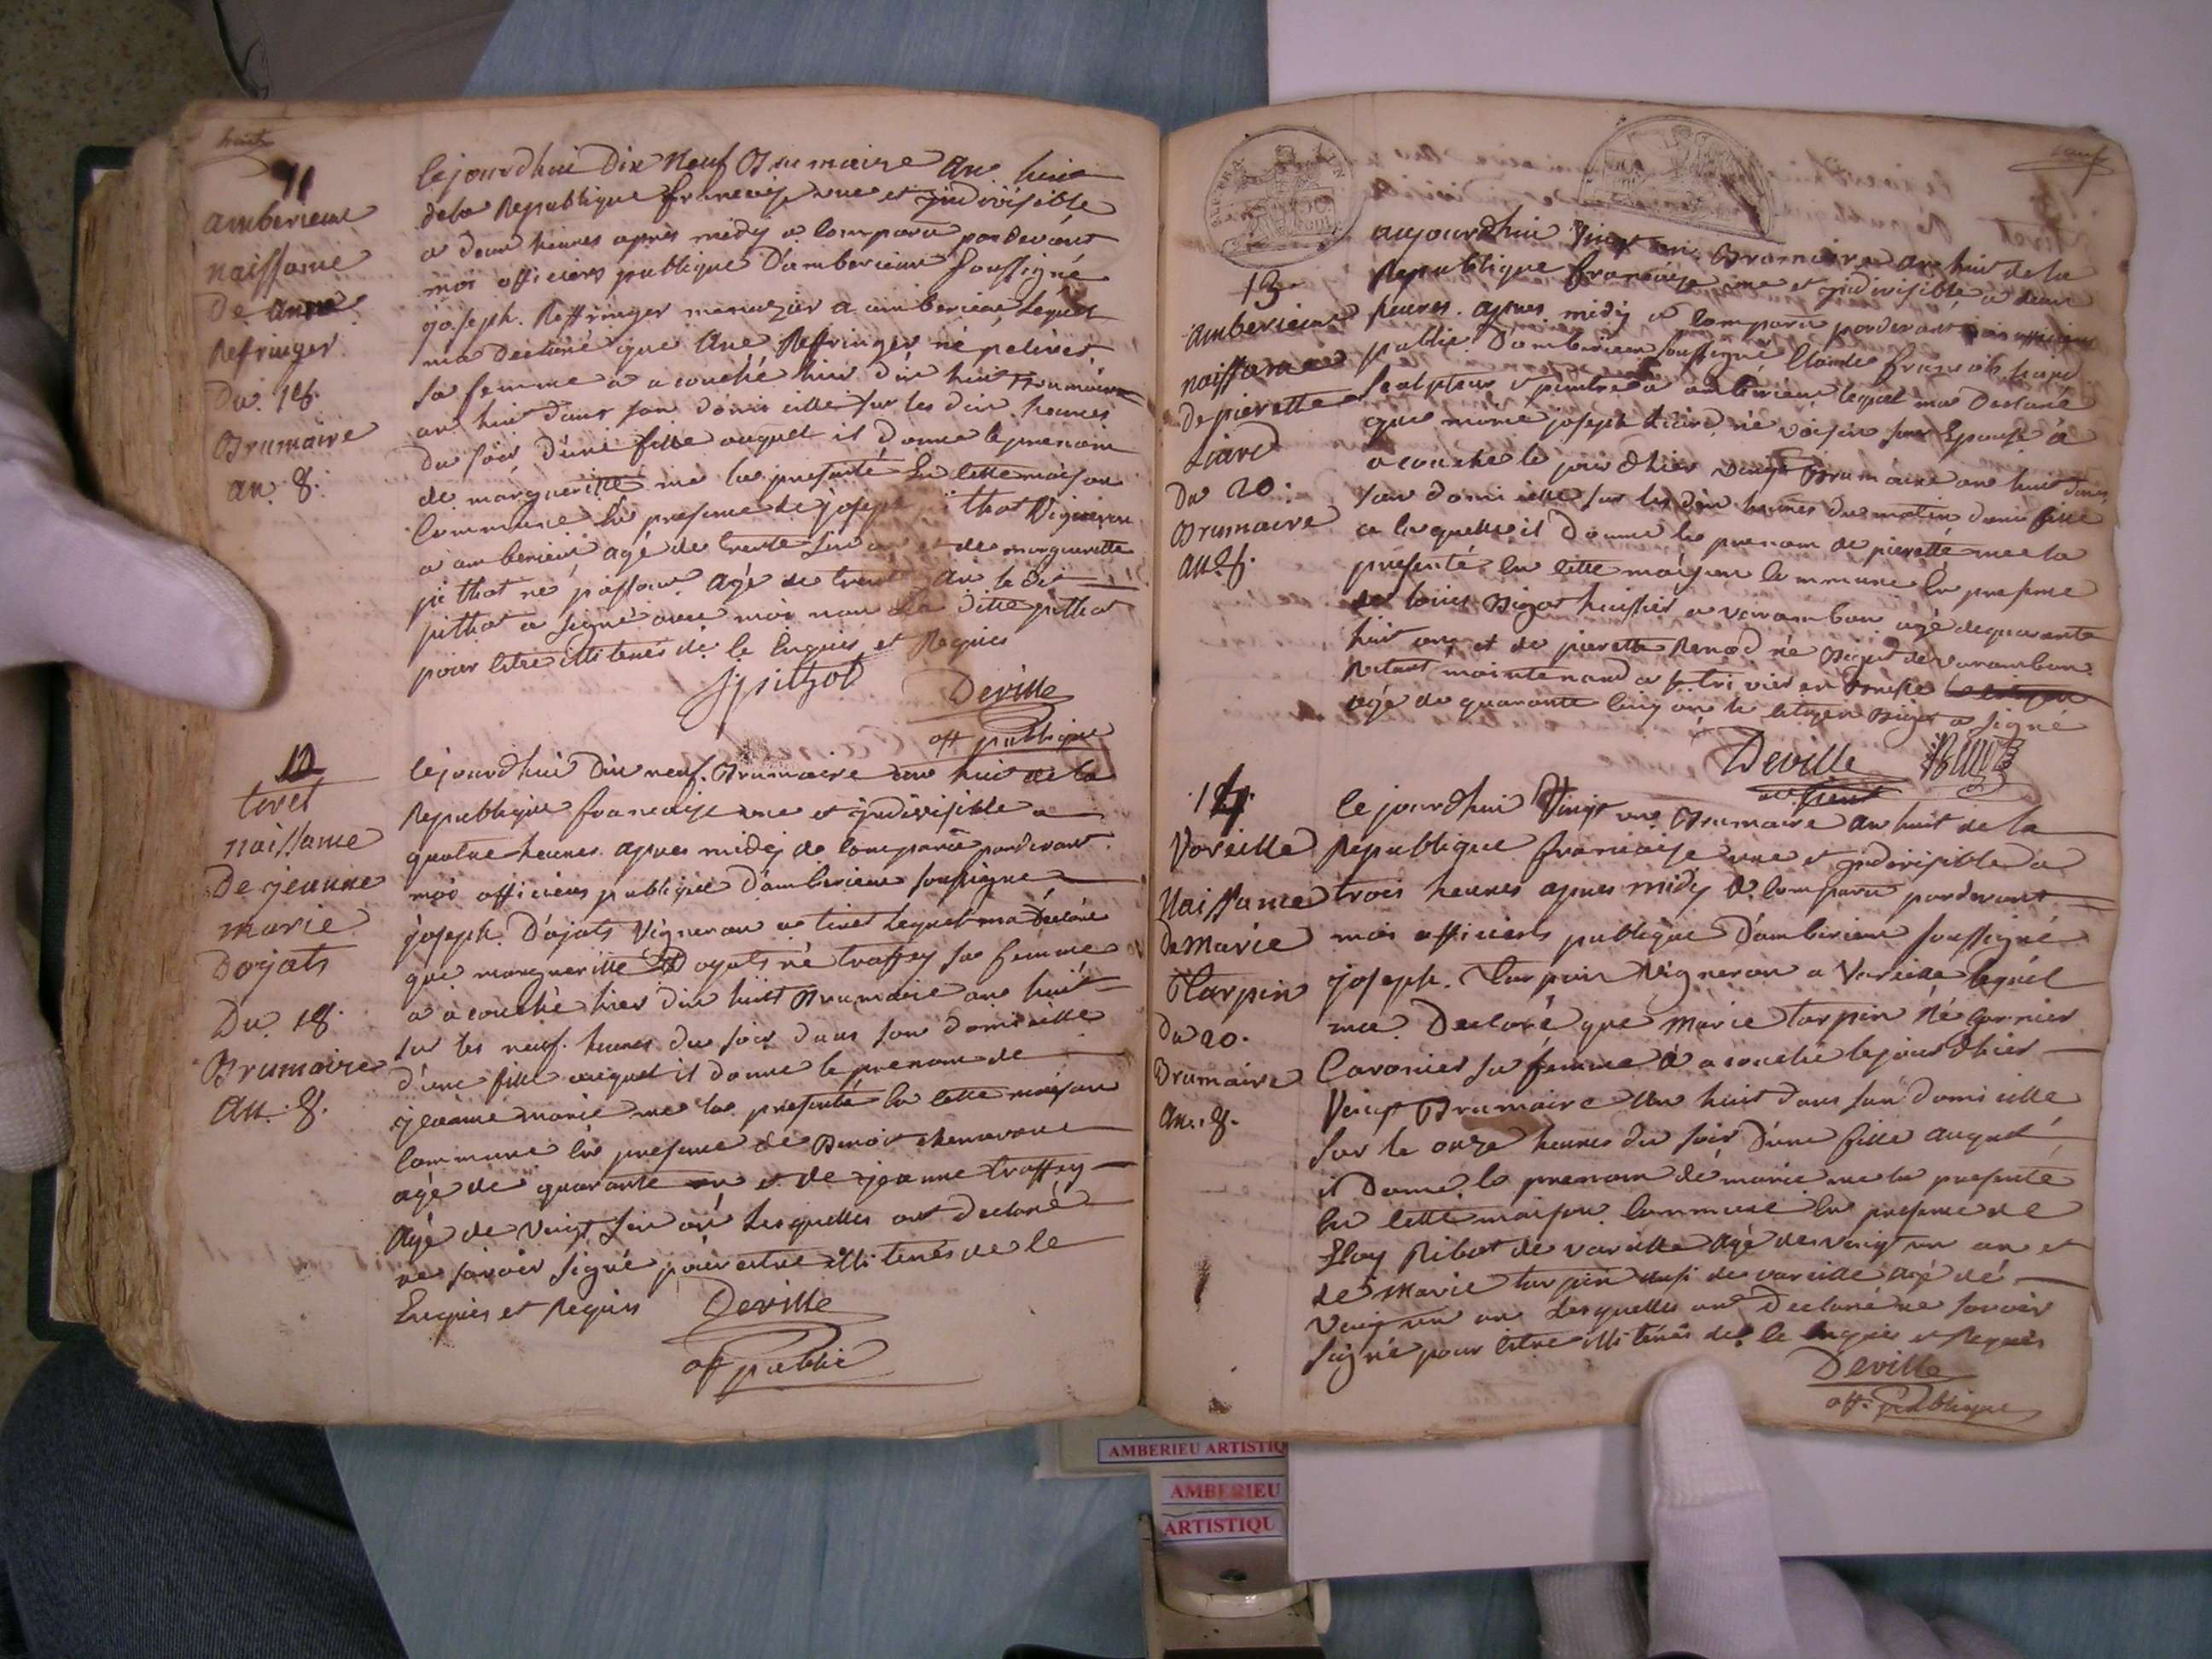 huit
11
amberieux
naissance
De anne
Refringer
Du. 18.
Brumaire
an. 8.
lejourdhui Dix Neuf Brumaire an huit
dela Republique francaise une et indivisible
a deux heures apres midy a comparu pardevant
moi officiers publique D'amberieux soussigné
joseph. Reffringer menuzier a amberieux Lequel
ma Declaré que Ane Reffringer né
sa femme a acouché hier dix huit Brumaire
an huit dans son domicille sur les dix heures
du soir d'une fille auquel il donne le prenom
de margueritte me la presenté En cette maison
Commune En presence de joseph pithot Vigneron
a amberieux agé de trente six an et de margueritte
pithot né passou agé de trente an le dit
pithot a signé avec moi non la ditte pithot
pour estre illiterés de ce Enquis et Requis
J pithot
Deville
off publique
12
tiret
naissance
De jeanne
marie
Dojats
Du. 18.
Brumaire
an. 8.
lejourdhui Dix neuf. Brumaire an huit de la
Republique francaise une et indivisible a
quatre heures apres midy de comparu pardevant
moi officiers publique D'amberieux soussigne
joseph. Dojats Vigneron a tiret Lequel ma Declaré
que margueritte Dojats né traffey sa femme
a acouché hier dix huit Brumaire an huit
sur les neuf. heures du soir dans son domicille
d'une fille auquel il donne le prenom de
jeanne marie me la presenté En cette maison
Commune En presence de Benoit chenavone
agé de quarante an et de jeanne traffey
Agé de Vingt six an Lesquelles ont declaré
ne savoir signé pour estre illiterés de ce
Enquis et Requis
Deville
off public
neuf
13.
amberieux
naissance
De pierette
Liard
Du 20.
Brumaire
an 8.
aujourdhui Vingt un Brumaire an huit de la
Republique francaise une et indivisible a deux
heures. apres midy a comparu pardevant moi officiers
public D'amberieux soussigné Claude francois Liard
Sculpteur peintre a amberieux lequel ma Declaré
que marie joseph Liard né voisin son Epouse a
acouché le jour dhier vingt Brumaire an huit dans
son domicille sur les dix heures du matin d'une fille
a laquelle il donne le prenom de pierette me la
presenté En cette maison Commune En presence
de louis Bigot huissier a varambon agé dequarante
huit ans et de pierette Renod né Bigot de varambon
Restant maintenand a
agé de quarante cinq ans le citoyen Bigot a signé
Deville
14.
Vareille
Naissance
De Marie
Tarpin
Du 20.
Brumaire
an. 8.
le jourdhui Vingt un Brumaire an huit de la
Republique francaise une et indivisible a
trois heures apres midy a comparu pardevant
moi officiers publique D'amberieux soussigné
joseph. Tarpin Vigneron a Vareille lequel
ma Declaré que Marie tarpin Né Garnier
sa femme a acouché lejourdhier
Vingt Brumaire an huit dans son Domicille
sur le onze heures du soir D'une fille auquel
il Donne le prenom de marie me la presenté
En cette maison Commune En presence de
Eloy Ribot de vareille Agé de vingt un an et
de Marie tarpin ausi de vareille agé dé
Vingt un an Lesquelles ont Declaré ne savoir
signé pour estre illiterés de ce Enquis et Requis
Deville
off. Publique
AMBERIEU ARTISTIQ
AMBERIEU
ARTISTIQU